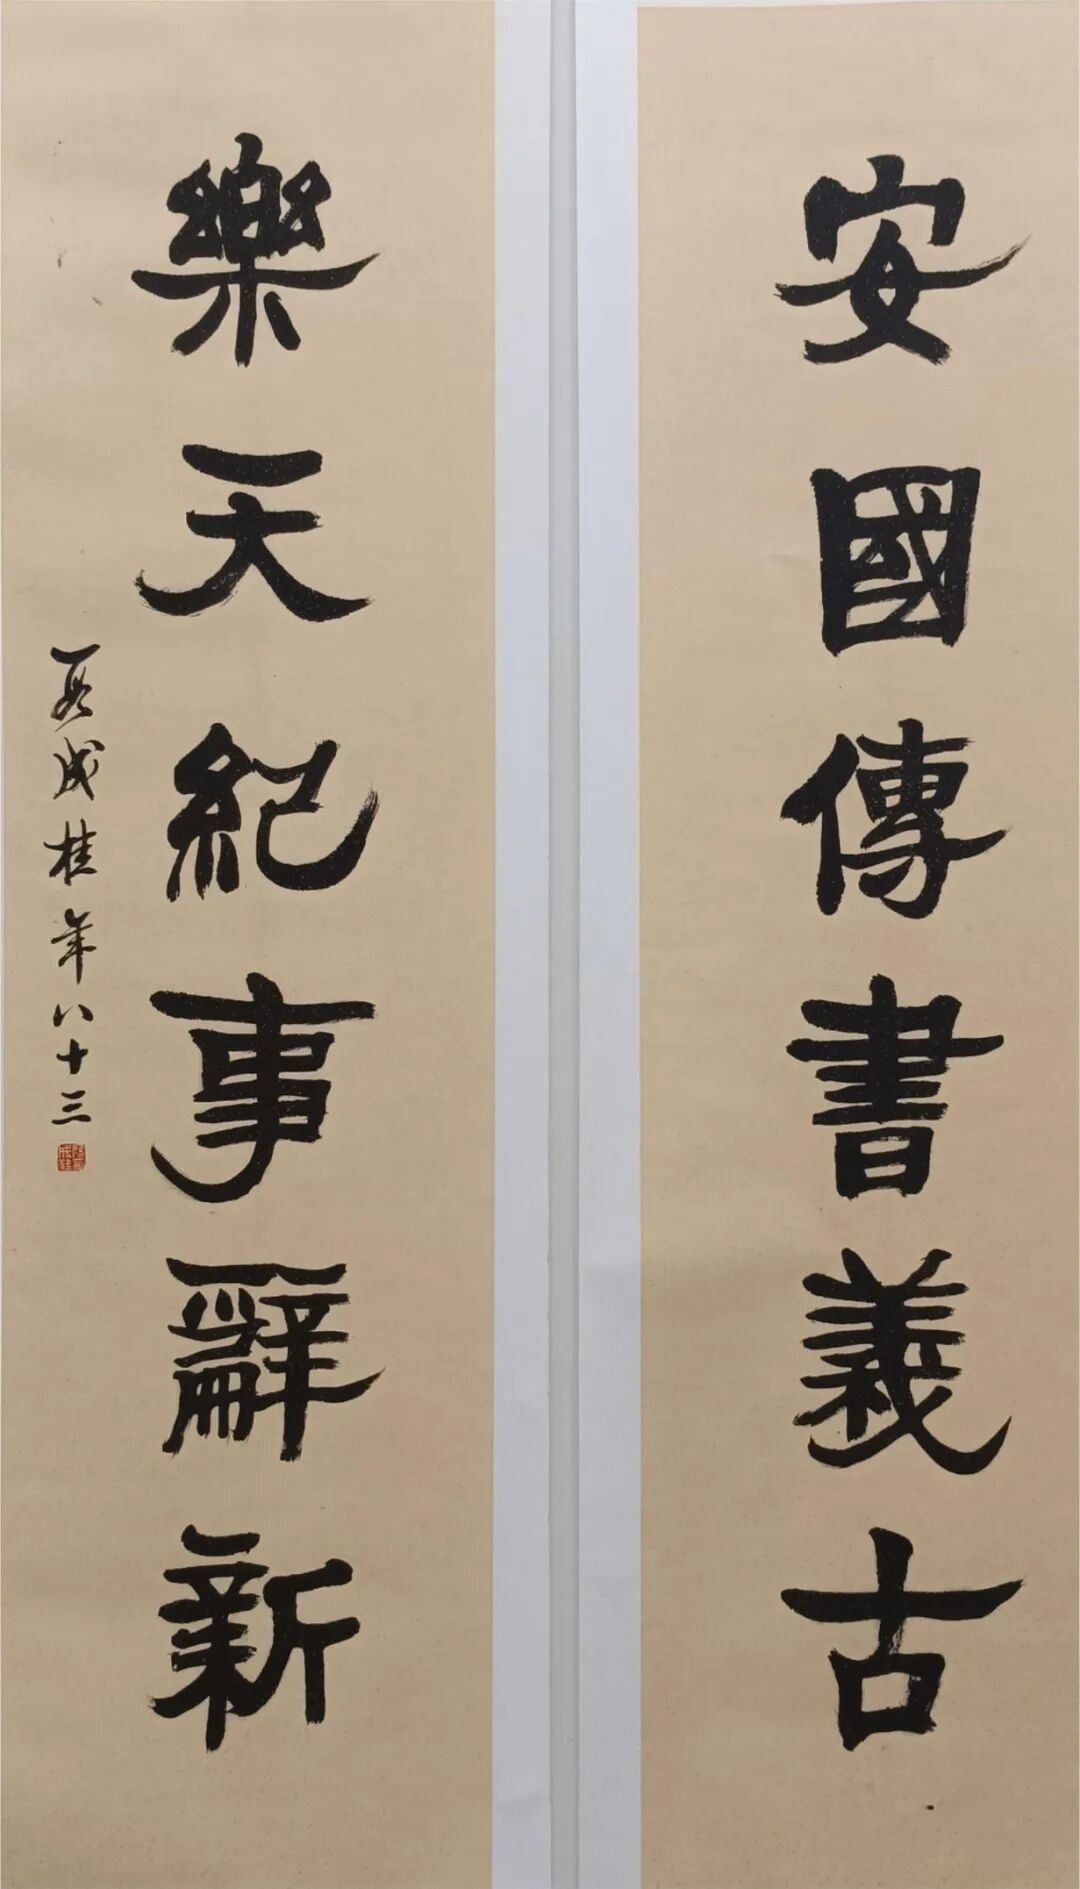 安國傳書義古
樂天紀事辭新
段成桂年八十三